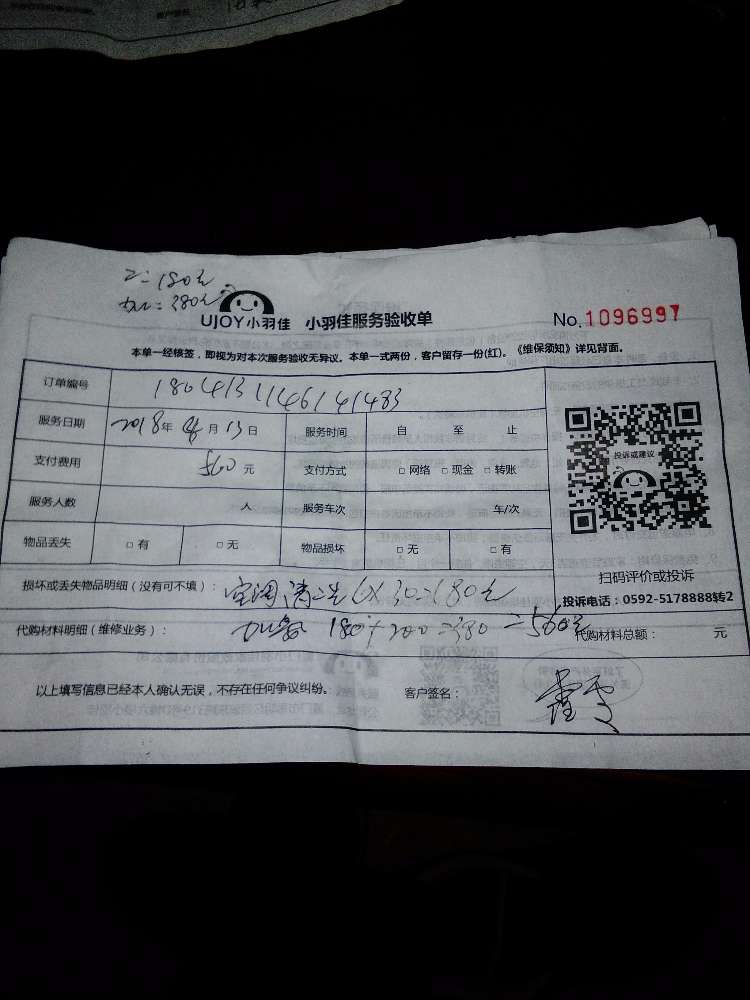 =180元
=380元
UJOY小羽佳 小羽佳服务验收单 No.1096997
本单一经核签，即视为对本次服务验收无异议。本单一式两份，客户留存一份(红)。《维保须知》详见背面。
订单编号 1804131146141483
服务日期 2018年 4月 13日 服务时间 自 至 止
支付费用 560元 支付方式 □网络 □现金 □转账
服务人数 人 服务车次 车/次
物品丢失 □有 □无 物品损坏 □无 □有
投诉或建议
扫码评价或投诉
投诉电话：0592-5178888转2
损坏或丢失物品明细（没有可不填）： 空调清洗6×30=180元
代购材料明细（维修业务）： 加氨 180+200=380 =560元 代购材料总额： 元
以上填写信息已经本人确认无误，不存在任何争议纠纷。 客户签名：